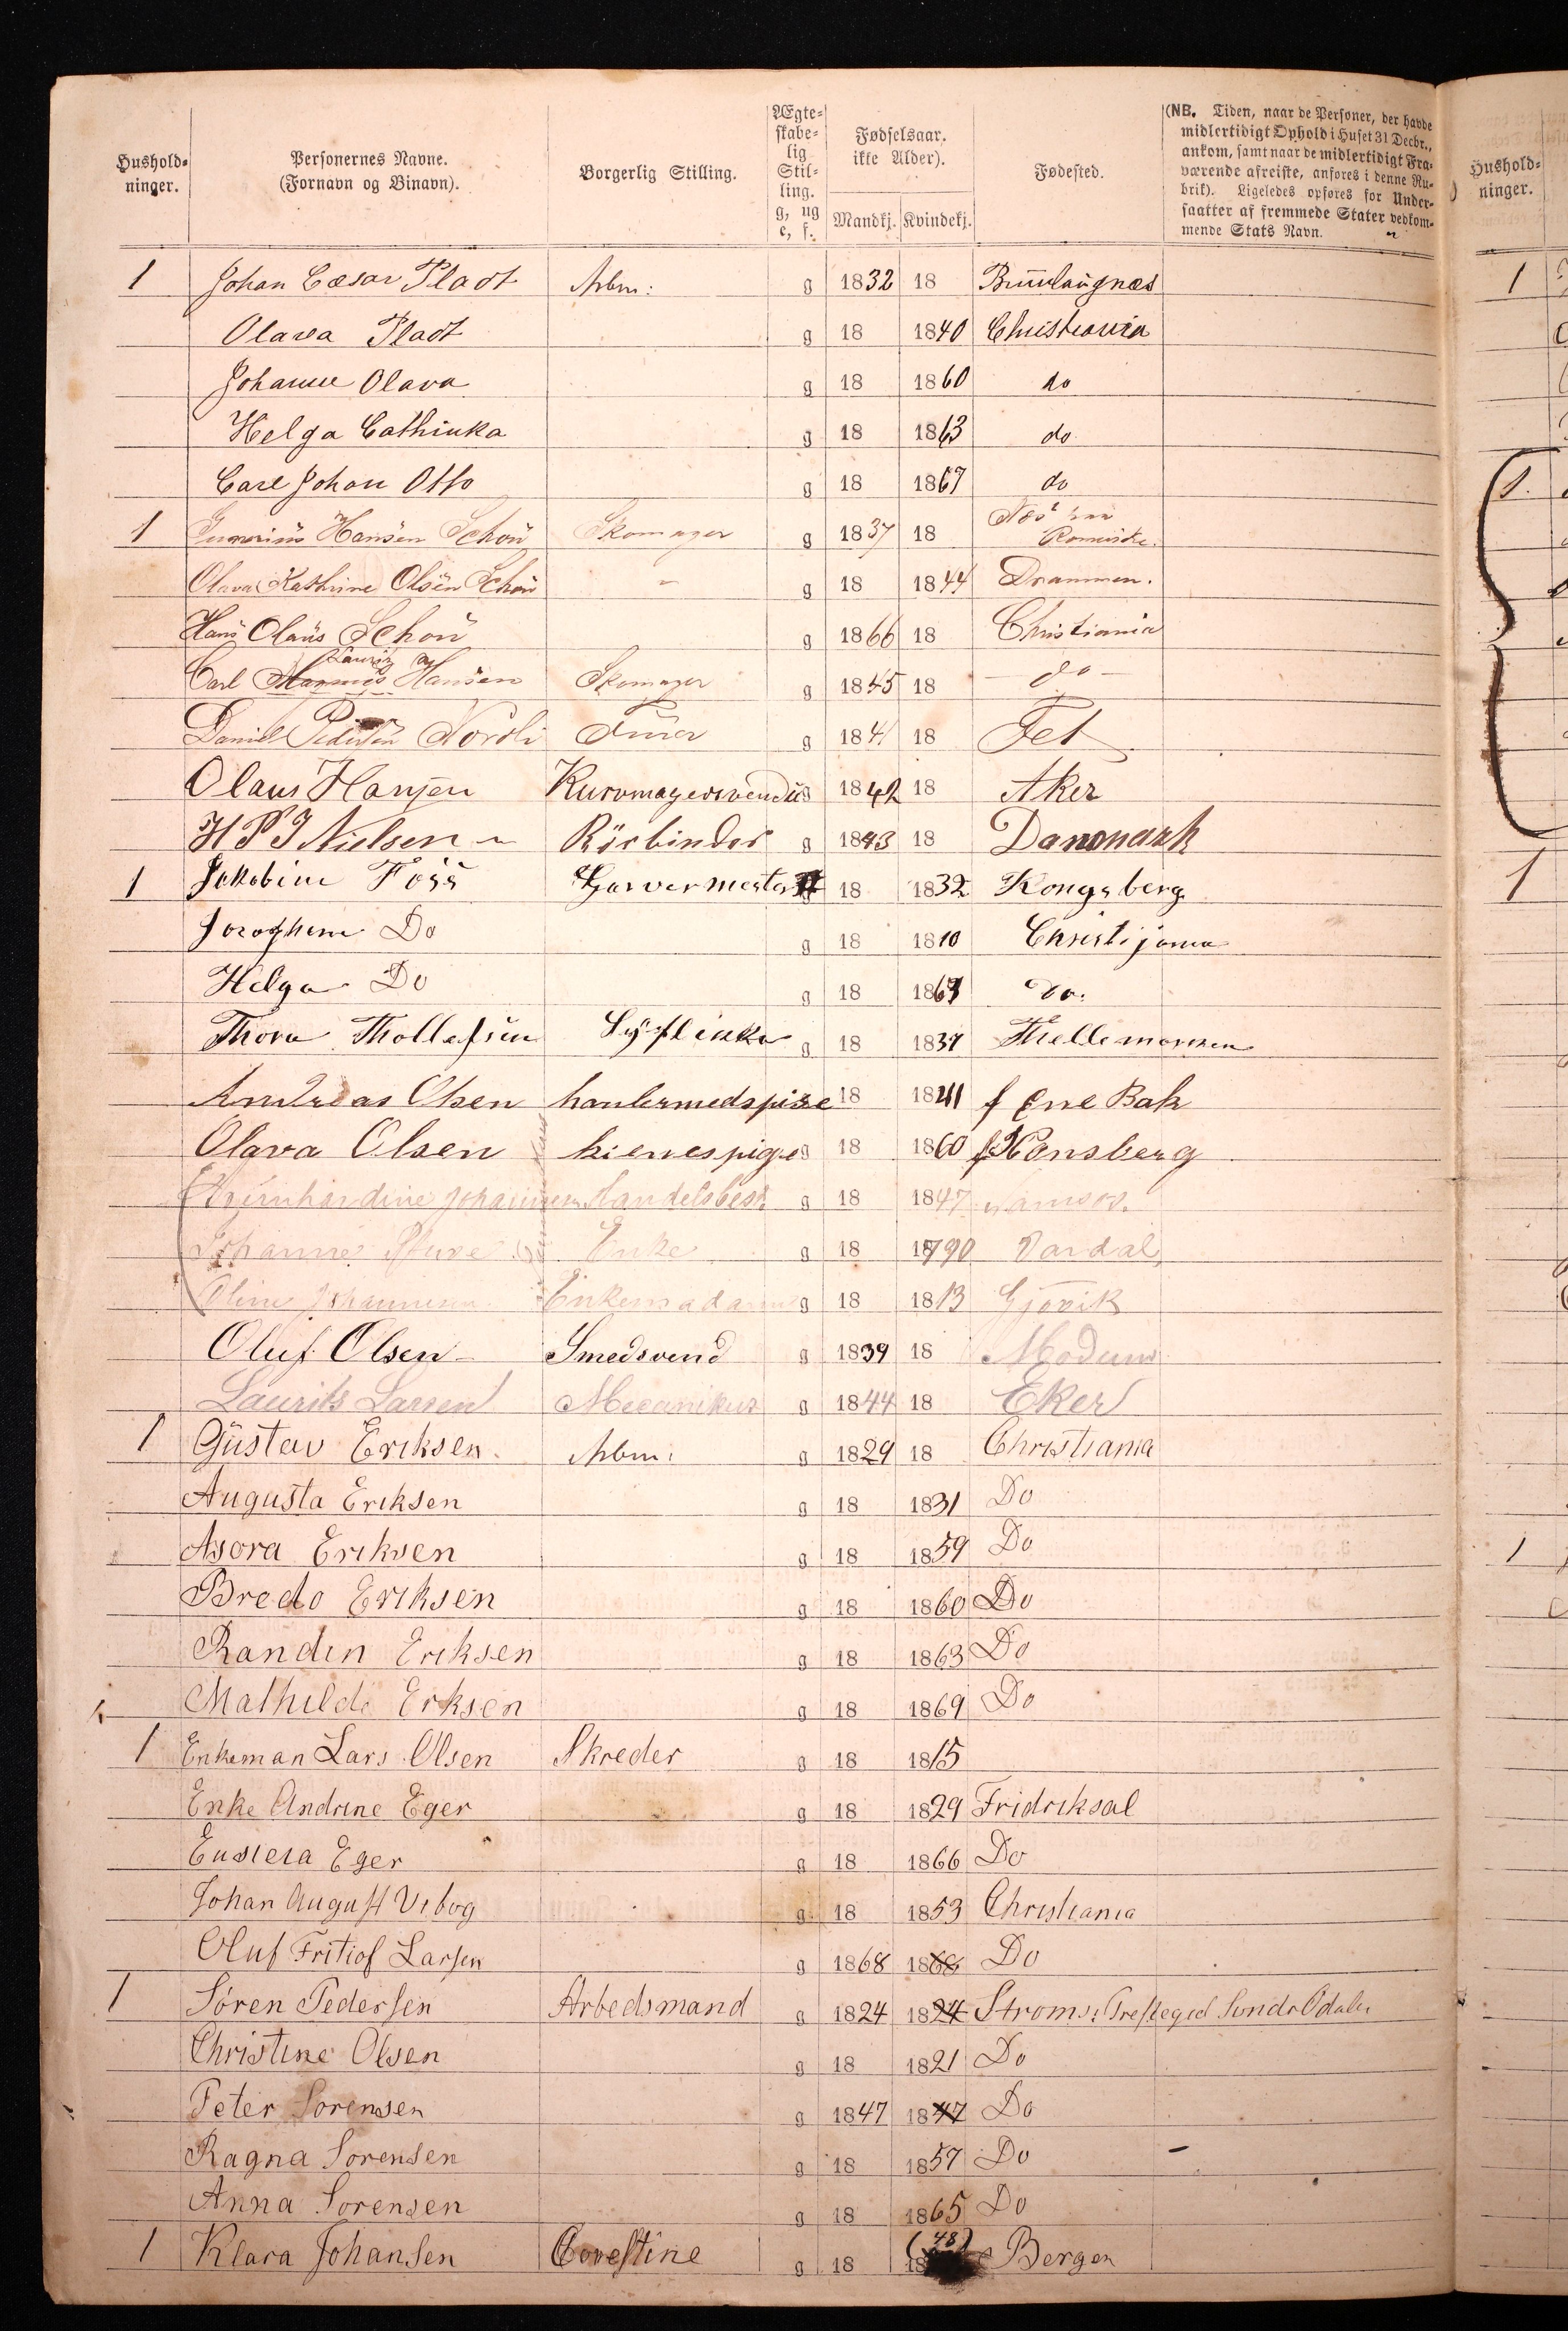 Hushold-
ninger.
Personernes Navne.
(Fornavn og Binavn).
Borgerlig Stilling.
Ægte-
skabe-
lig
Stil-
ling.
g, ug
e, f.
Fødselsaar.
ikke Alder).
Mandkj. Kvindekj.
Fødested.
(NB. Tiden, naar de Personer, der havde
midlertidigt Ophold i Huset 31 Decbr.,
ankom, samt naar de midlertidigt Fra-
værende afreiste, anføres i denne Ru-
brik). Ligeledes opføres for Under-
saatter af fremmede Stater vedkom-
mende Stats Navn.
Hushold-
ninger.
1 Johan Cæsar Pladt Arbm: g 1832 18 Brunlaugnæs
Olava Pladt g 18 1840 Christiania
Johanne Olava g 18 1860 do
Helga Cathinka g 18 1863 do
Carl Johan Otto g 18 1867 do
1 Hansen Schou Skomager g 1837 18 Næs
Olava Kathrine Olsen Schou g 18 1844 Drammen.
Hans Olaus Schou g 1866 18 Christiania
Carl Hansen Skomager g 1845 18 - do -
Daniel Pedersen Nordli g 184 18 Fet
Olaus Hansen Kurvmagersvend g 1842 18 Aker
H P J Nielsen Börbinder g 1843 18 Danmark
1 Jakobine Foss Garvermester g 18 1832 Kongsberg
Do g 18 18 Christijania
Helga Do g 18 186 do.
Thora Thollefsen g 18 183 Thellemarken
Andreas Olsen 18 18 Ene Bak
Olava Olsen tienespige g 18 1860 Konsberg
Johannesen Handelsbest. g 18 1847 Namsos.
Johanne Enke g 18 1790 Vardal
Oline Johannesen Enkemadam g 18 1813 Gjøvik
Oluf Olsen Smedsvend g 1839 18 Modum
Laurits Larsen Mecanikus g 1844 18 Eker
1 Gustav Eriksen Arbm: g 1829 18 Christiania
Augusta Eriksen g 18 1831 Do
Asora Eriksen g 18 1859 Do
Bredo Eriksen g 18 1860 Do
Randin Eriksen g 18 1863 Do
Mathilde Erksen g 18 1869 Do
1 Enkeman Lars Olsen Skreder g 18 1815
Enke Andrine Eger g 18 1829 Fridriksal
Eger g 18 1866 Do
Johan August Vibog g 18 1853 Christiania
Oluf Fritiof Larsen g 1868 1868 Do
1 Søren Pedersen Arbedsmand g 1824 1824 Stroms: Presteged Sondr Odalen
Christine Olsen g 18 1821 Do
Peter Sorensen g 1847 1847 Do
Ragna Sorensen g 18 1857 Do
Anna Sorensen g 18 1865 Do
1 Klara Johansen g 18 18 (48) Bergen